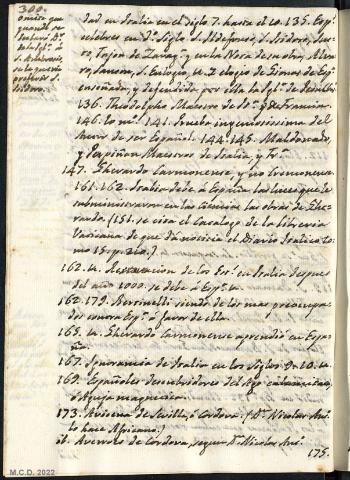 300.
omite que
quando se
Dn
a Sn
S. Ambrosio,
S.
Isidoro.
dad en Italia en el siglo 7. hasta el 10. 135. Esp.s
celebres en Dho. siglo S. Ildefonso, S. Isidoro,
Tajon de Zarag.a y en la Nota de su obra, Alvaro,
Sanson, S. Eulogio, &c. elogio de
enseñada, y defendida por ella la Igl.a de
136. Theodulpho Maestro de It.a y de Francia.
146. to no. 141. Prueba ingeniosissima del
Autor de ser Español. 144. 145.
y Maestros de Italia, y Fr.
147. Gherardo Carmonense, y no Cremonense.
161. 162. Italia debe à España las luces que le
subministraron en las ciencias las obras de Gherardo
(151. se cita el Catalogo de la libreria
Vaticana de que dá noticia el Diario Italico tomo
15. p. 210.)
162. ta. Restauracion de los Est.s en Italia despues
del año 1000. se debe à Esp.a ta.
162. 179. Bettinelli siendo de los mas preocupados
contra Esp.a à favor de ella.
165. ta. Gherardo Carmonense aprendió en España.
167. Ignorancia de Italia en los Siglos 9. 10. ta.
169. Españoles descubridores del
ò Aguja magnetica.
173. Avicena de Sevilla, ò Cordova. (Dn. Nicolas Anto.
lo hace Africano.)
ib. Averroes de Cordova, segun Dn. Nicolas Anto.
175.
M.C.D. 2022